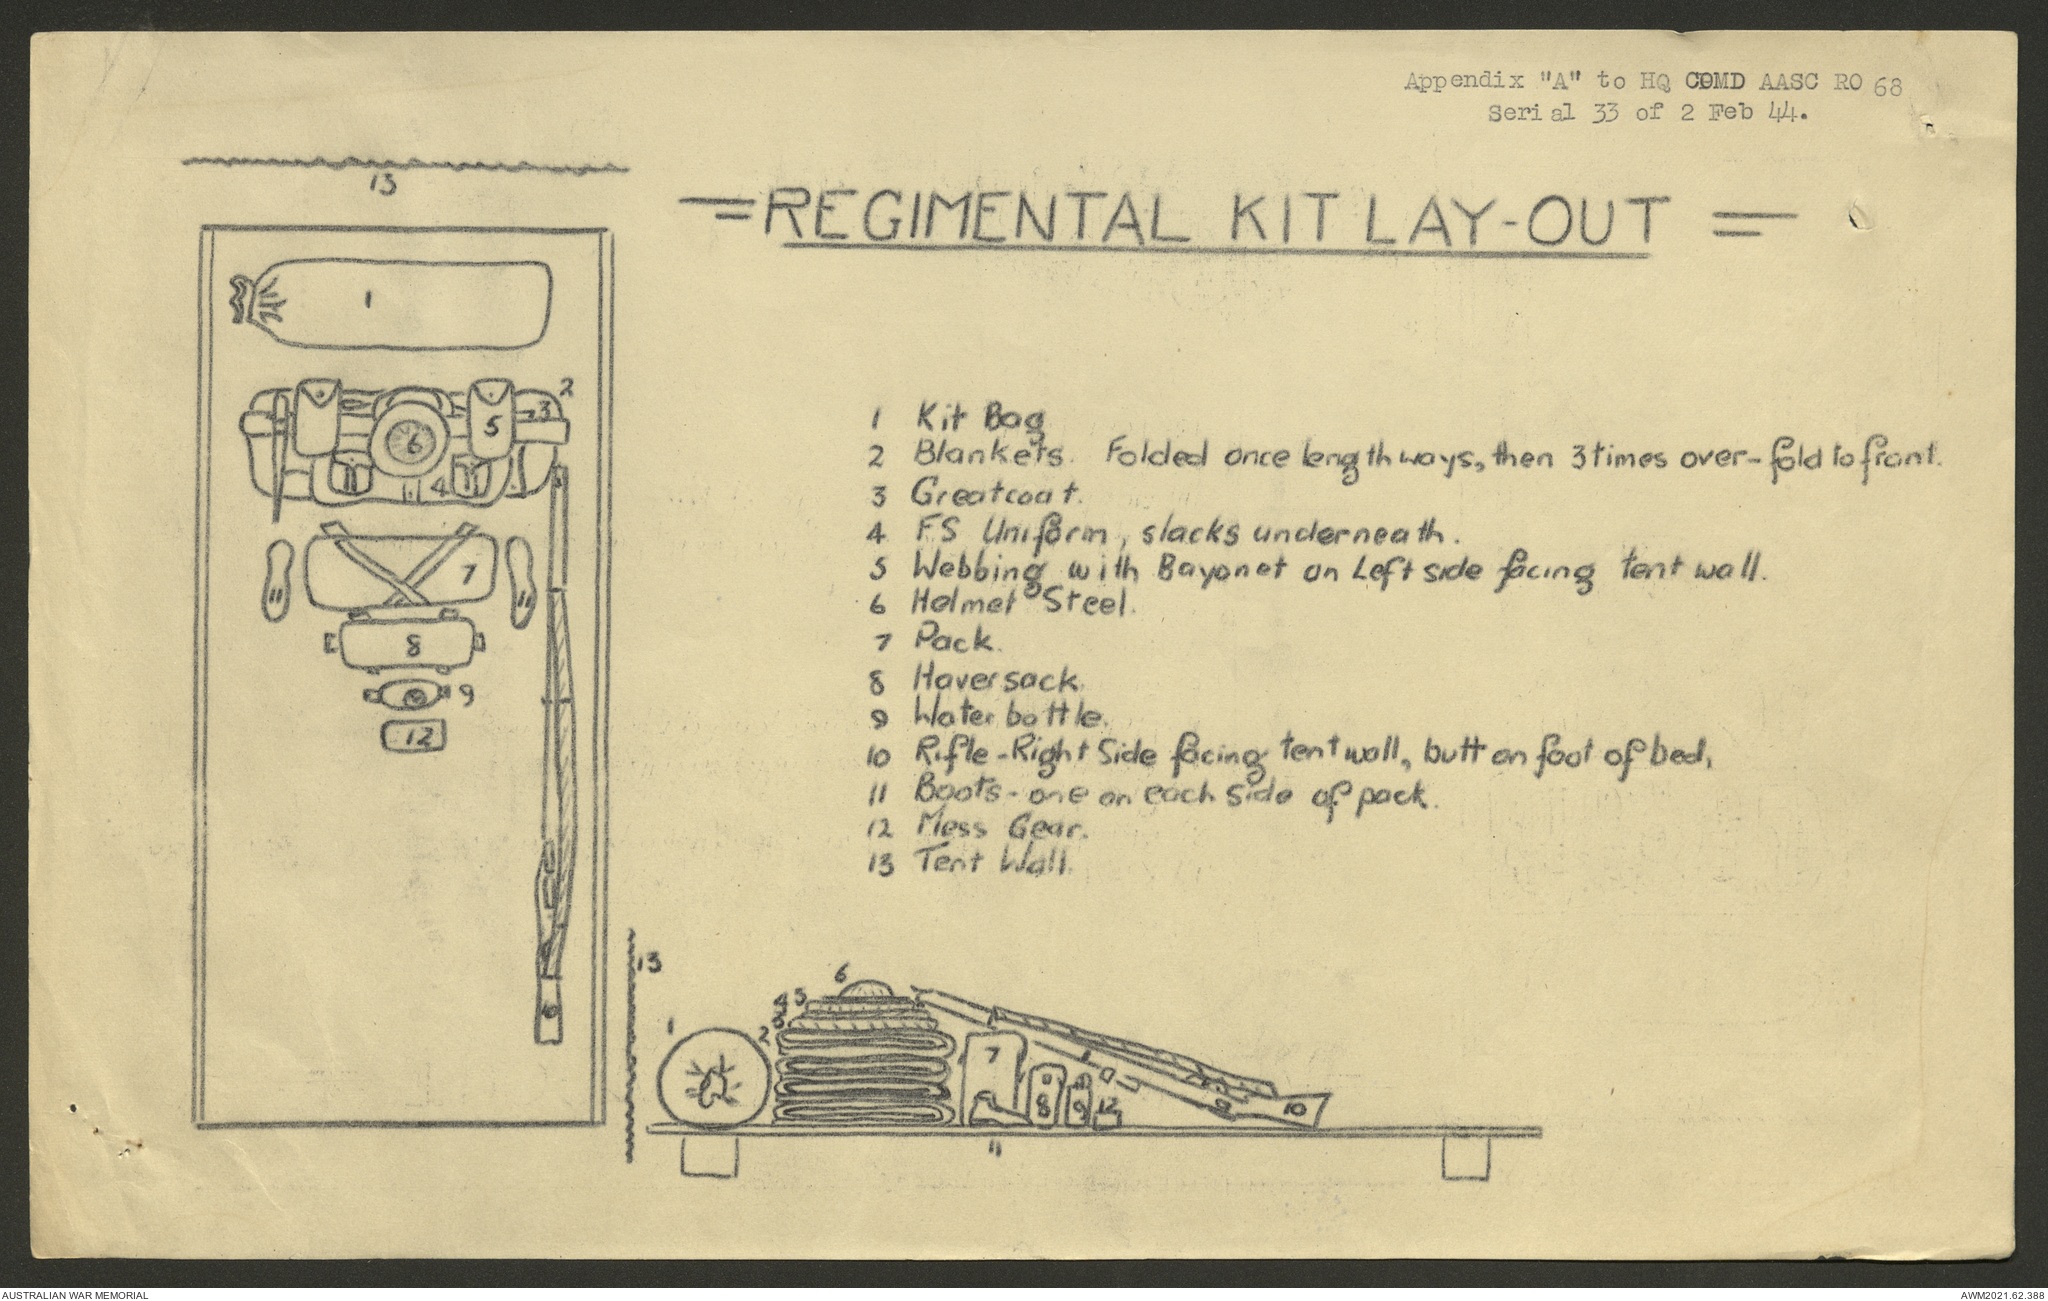 Appendix "A" to HQ COMD AASC RO 68
Serial 33 of 2 Feb 44.
= REGIMENTAL KIT LAY-OUT =
13
1
2
3
5
6
4
7
11
11
8
9
12
10
1 Kit Bag
2 Blankets. Folded once lengthways, then 3 times over-fold to front.
3 Greatcoat.
4 FS Uniform, slacks underneath.
5 Webbing with Bayonet on Left side facing tent wall.
6 Helmet Steel.
7 Pack.
8 Haversack.
9 Water bottle.
10 Rifle-Right Side facing tent wall, butt on foot of bed.
11 Boots- one on each side of pack.
12 Mess Gear.
13 Tent Wall.
13
6
4 5
3
1
2
7
8
9
12
10
11
AUSTRALIAN WAR MEMORIAL
AWM2021.62.388